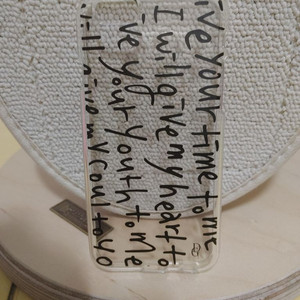 ive your time to me
I will give my heart to
ve your youth to me
will give my soul to yo